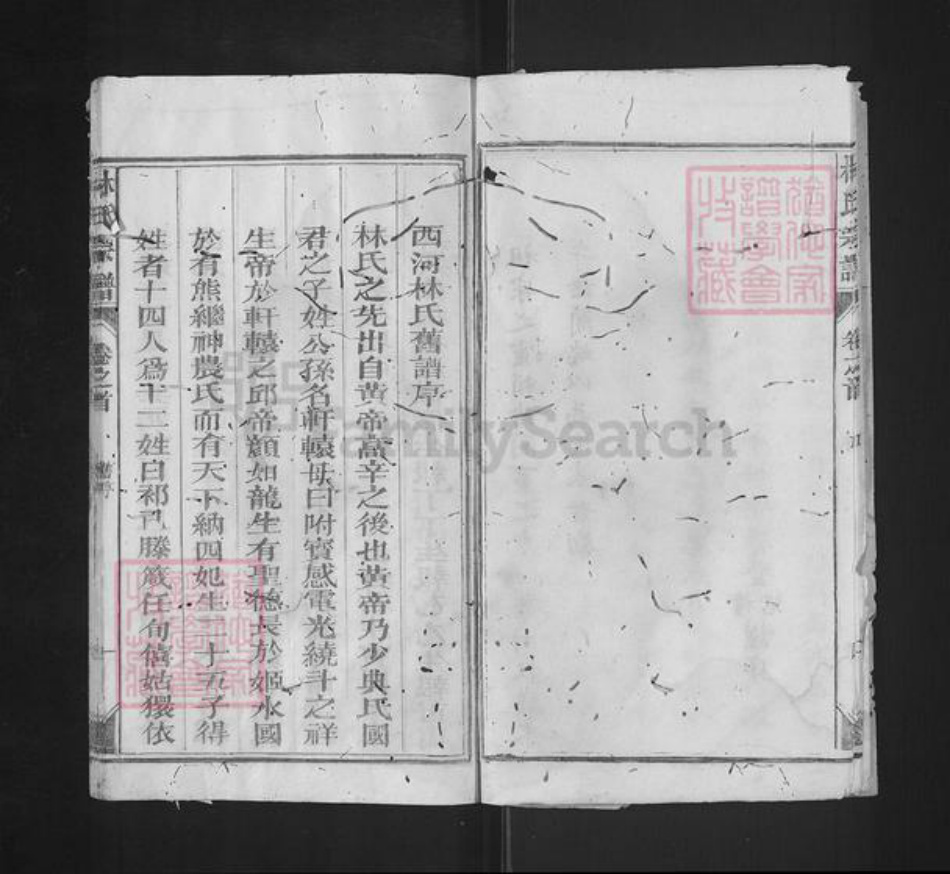 林氏宗譜
卷之首
西河林氏舊譜序
林氏之先出自黄帝高辛之後也黄帝乃少典氏國
君之子姓公孫名軒轅母曰附寶感電光繞斗之祥
生帝於軒轅之邱帝顏如龍生有聖德長於姬水國
於有熊繼神農氏而有天下納四妃生二十五子得
姓者十四人為十二姓曰祁己滕箴任旬僖姞獧依
林氏宗譜
卷之首
舊序
FamilySearch